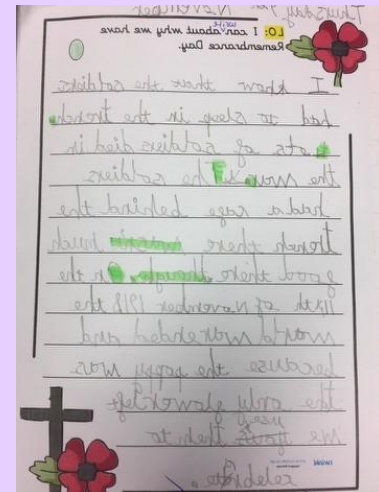 Thursday 7th November
LO: I can write about why we have
Remembrance Day.
I know that the soldiers
had to sleep in the trench.
Lots of soldiers died in
the war. The soldiers
had a cage behind the
trench there huch
good there. On the
11th of November 1918 the
world war ended and
because the poppy was
the only flower left
we used them to
celebrate.
twinkl